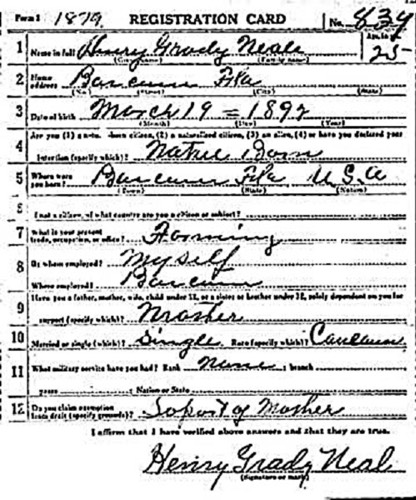 Form 1 1879 REGISTRATION CARD No. 839
1 Name in full Henry Grady Neals Age, in yrs. 25
(Given name) (Family name)
2 Home address Barcum Fla
(No.) (Street) (City) (State)
3 Date of birth March 19 = 1892
(Month) (Day) (Year)
Are you (1) a natural-born citizen, (2) a naturalized citizen, (3) an alien, (4) or have you declared your
4 intention (specify which)? Natrul Born
5 Where were you born? Barcum Fla U.S.A
(Town) (State) (Nation)
If not a citizen, of what country are you a citizen or subject?
7 What is your present trade, occupation, or office? Farming
8 By whom employed? Myself
Where employed? Barcum
Have you a father, mother, wife, child under 12, or a sister or brother under 12, solely dependent on you for
9 support (specify which)? Mother
10 Married or single (which)? Single Race (specify which)?
11 What military service have you had? Rank None ; branch
years ; Nation or State
12 Do you claim exemption from draft (specify grounds)? Soport of Mother
I affirm that I have verified above answers and that they are true.
Henry Grady Neal
(Signature or mark)